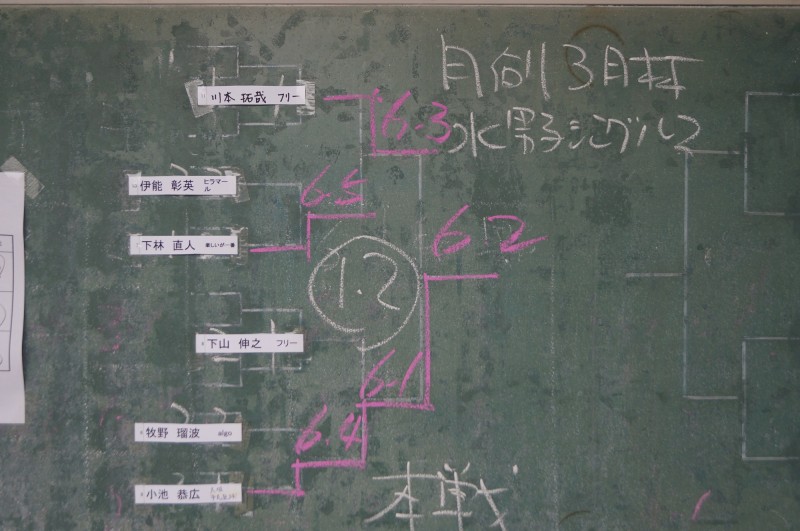 日向3月杯
水男子シングルス
川本 拓哉 フリー
6.3
伊能 彰英 ヒラマール
6.5
下林 直人 楽しいが一番
6.2
1.2
下山 伸之 フリー
6-1
牧野 瑠波 aigo
6.4
小池 恭広
本戦